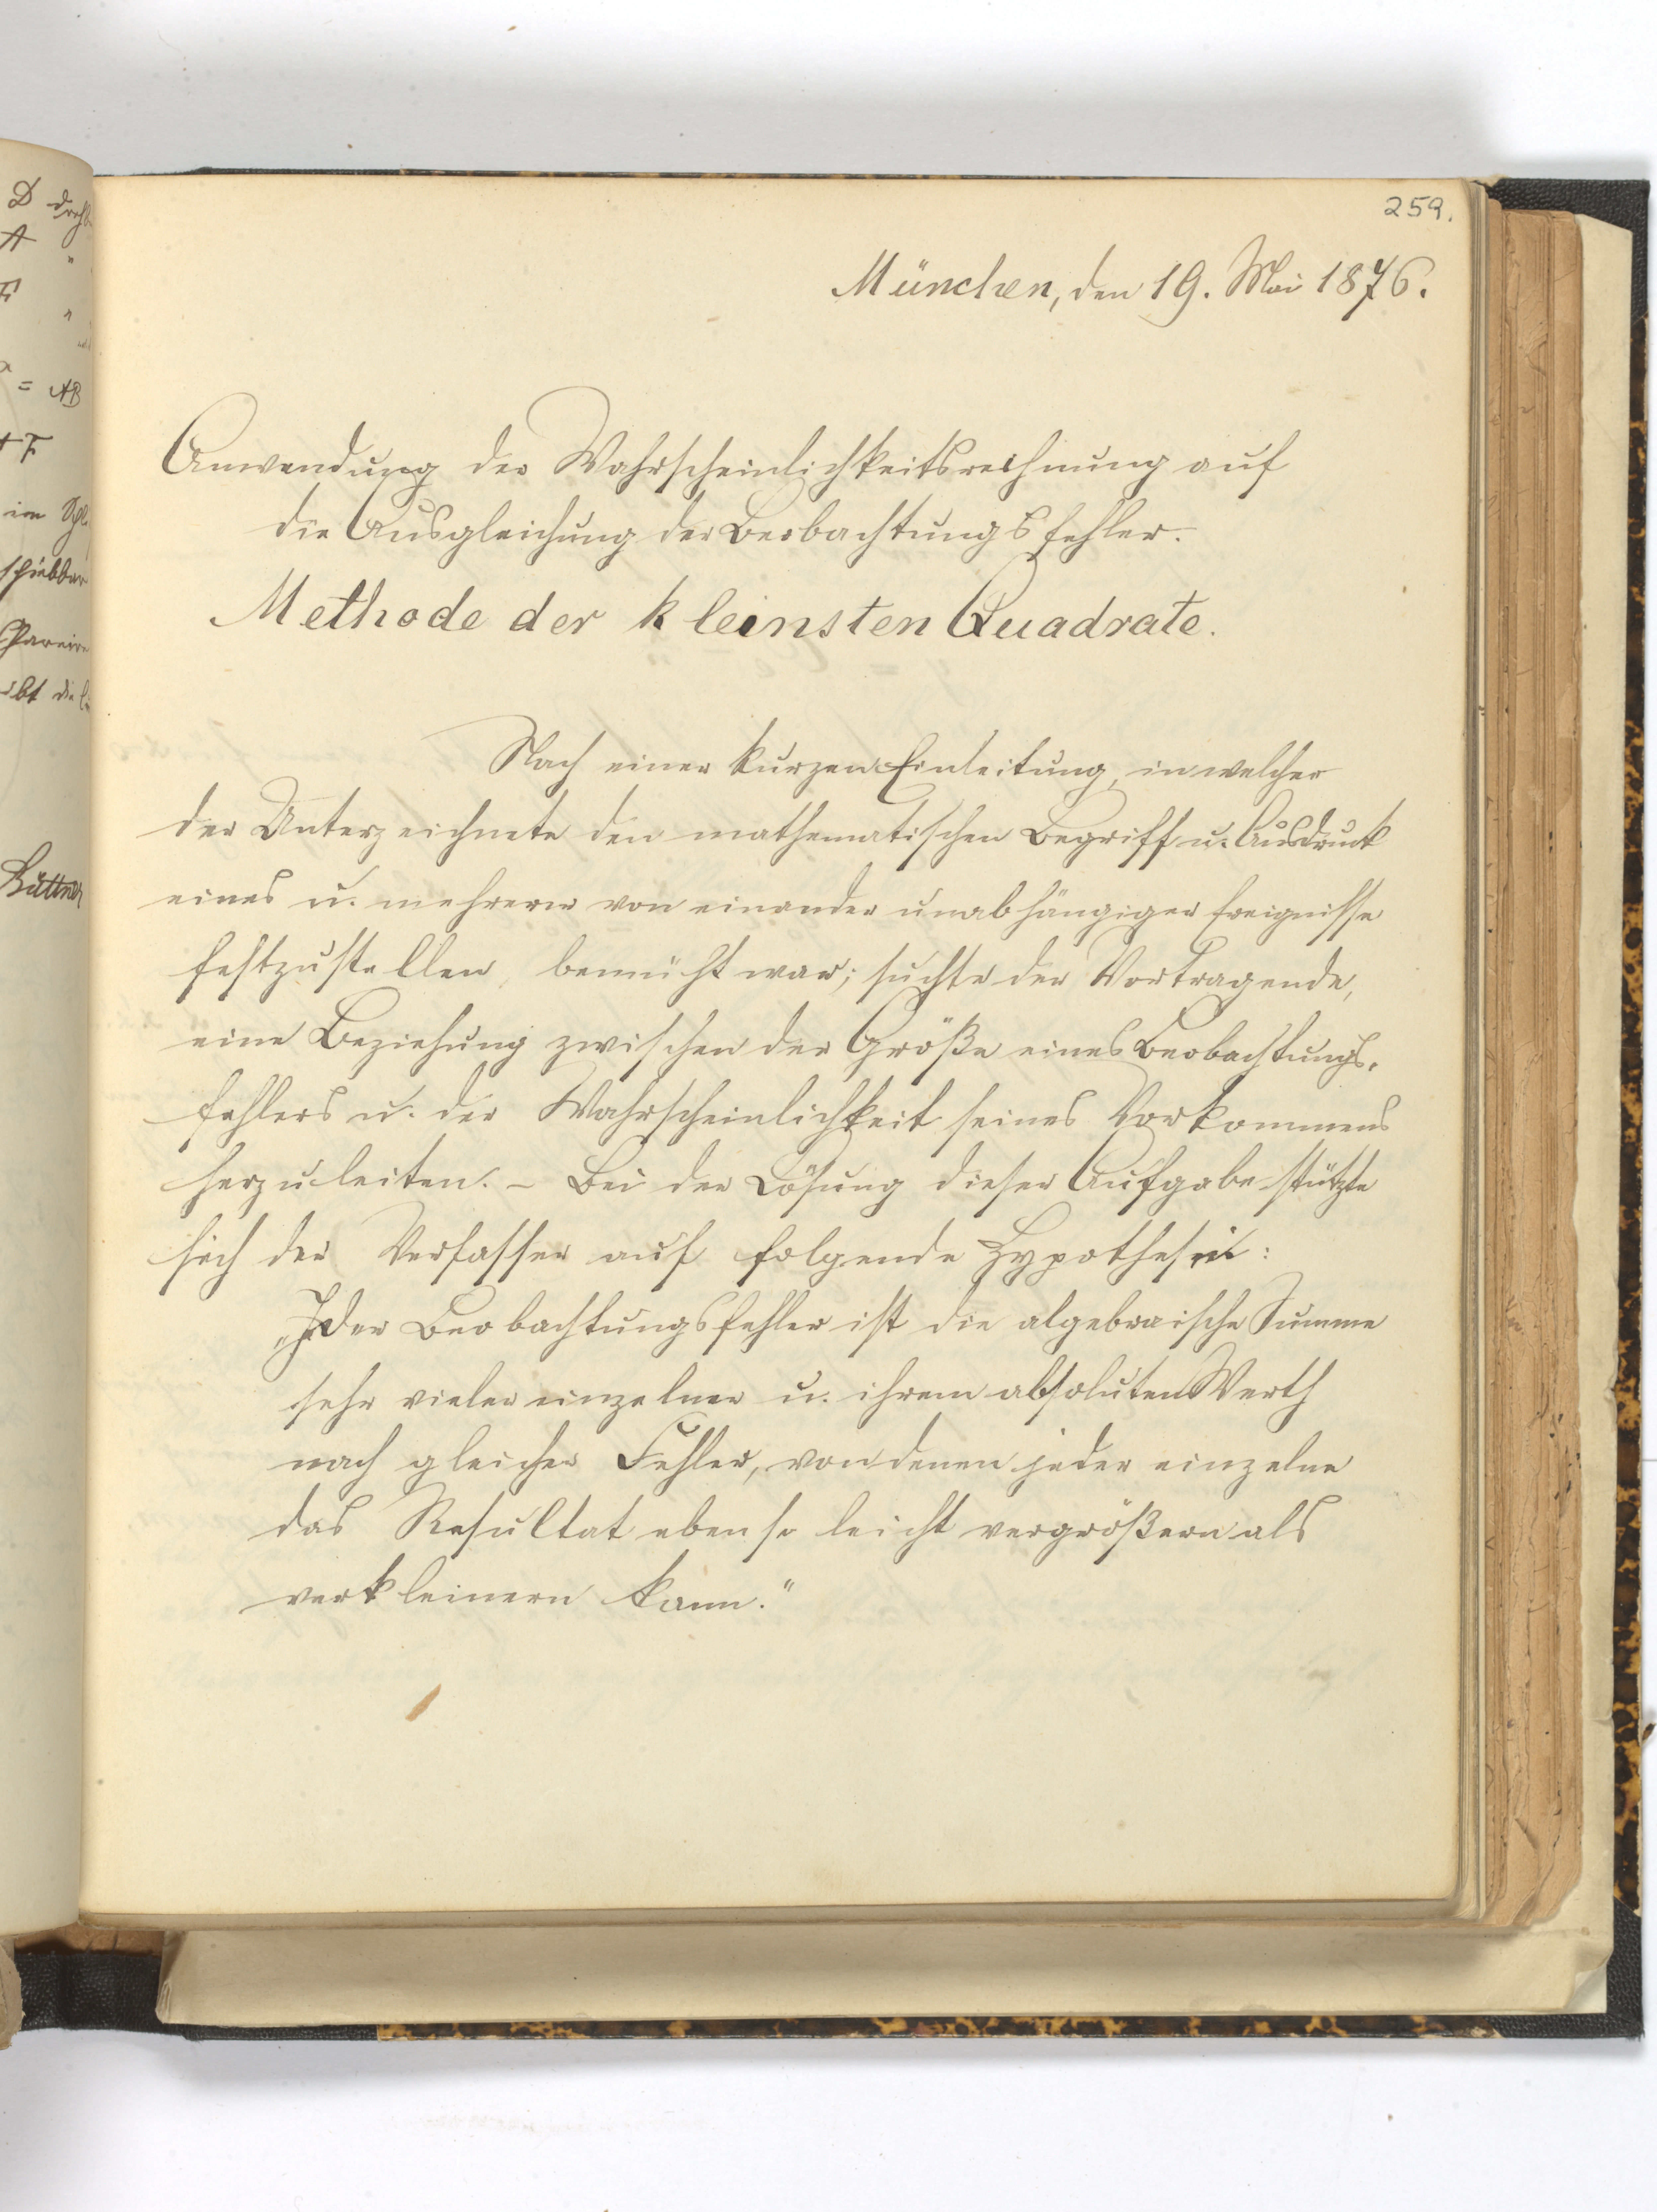 D
A "
F "
= AB
+ F
im
schiebbar
ibt die
Büttner
259.
München, den 19. Mai 1876.
Anwendung der Wahrscheinlichkeitsrechnung auf
die Ausgleichung der Beobachtungsfehler.
Methode der kleinsten Quadrate.
Nach einer kurzen Einleitung, in welcher
der Unterzeichnete den mathematischen Begriff u. Ausdruck
eines u. mehrerer von einander unabhängiger Ereignisse
festzustellen bemüht war; suchte der Vortragende,
eine Beziehung zwischen der Größe eines Beobachtungs-
fehlers u. der Wahrscheinlichkeit seines Vorkommens
herzuleiten. – Bei der Lösung dieser Aufgabe stützte
sich der Verfasser auf folgende Hypothese:
„Jeder Beobachtungsfehler ist die algebraische Summe
sehr vieler einzelner u. ihrem absoluten Werth
nach gleicher Fehler, von denen jeder einzelne
das Resultat ebenso leicht vergrößern als
verkleinern kann."